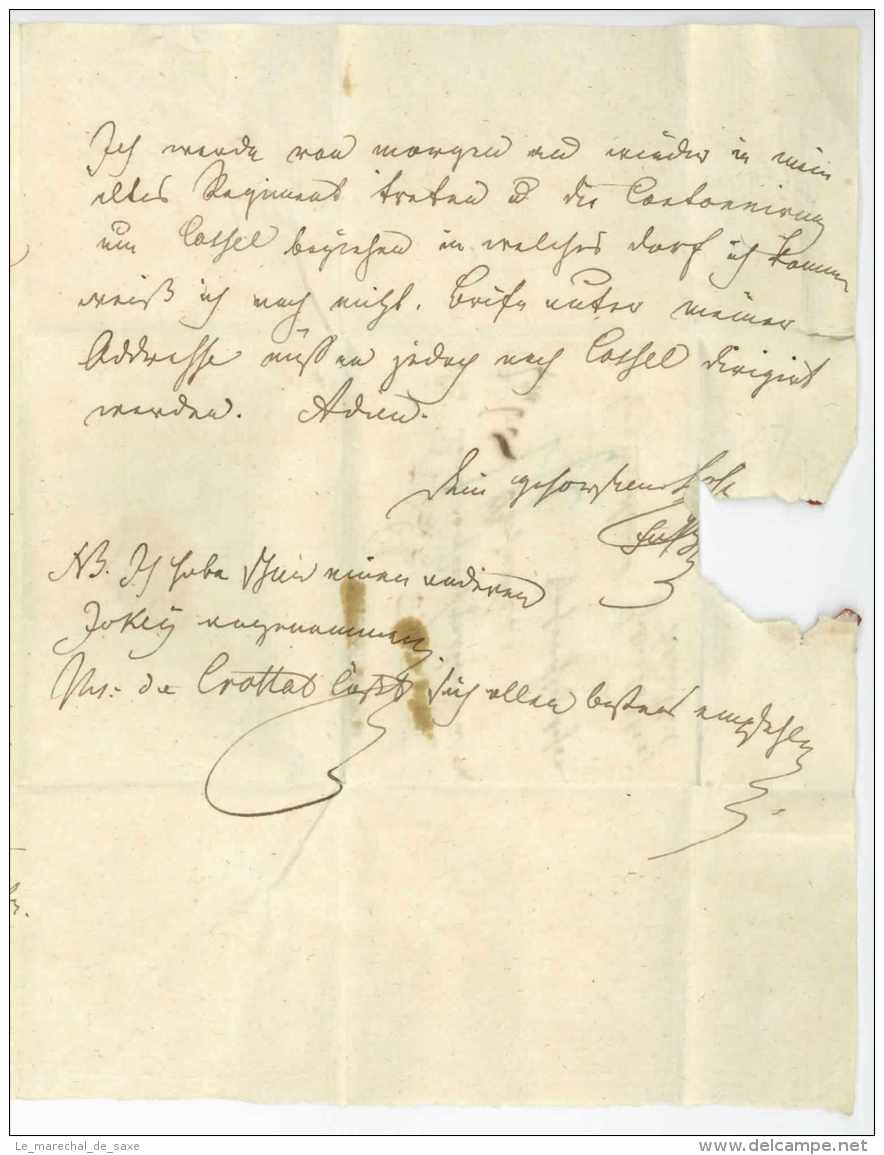 Ich werde von morgen an wieder in mein
altes Regiment treten u die Cantonnirung
um Cassel beziehen in welches Dorf ich komme
weiß ich noch nicht. Briefe unter meiner
Addresse müssen jedoch nach Cassel dirigirt
werden. Adieu.
Dein gehorsamer Sohn
NB. Ich habe einen anderen
Jokey angenommen.
Mr: de Crottat läßt sich allen bestens empfehlen
Le_marechal_de_saxe
www.delcampe.net